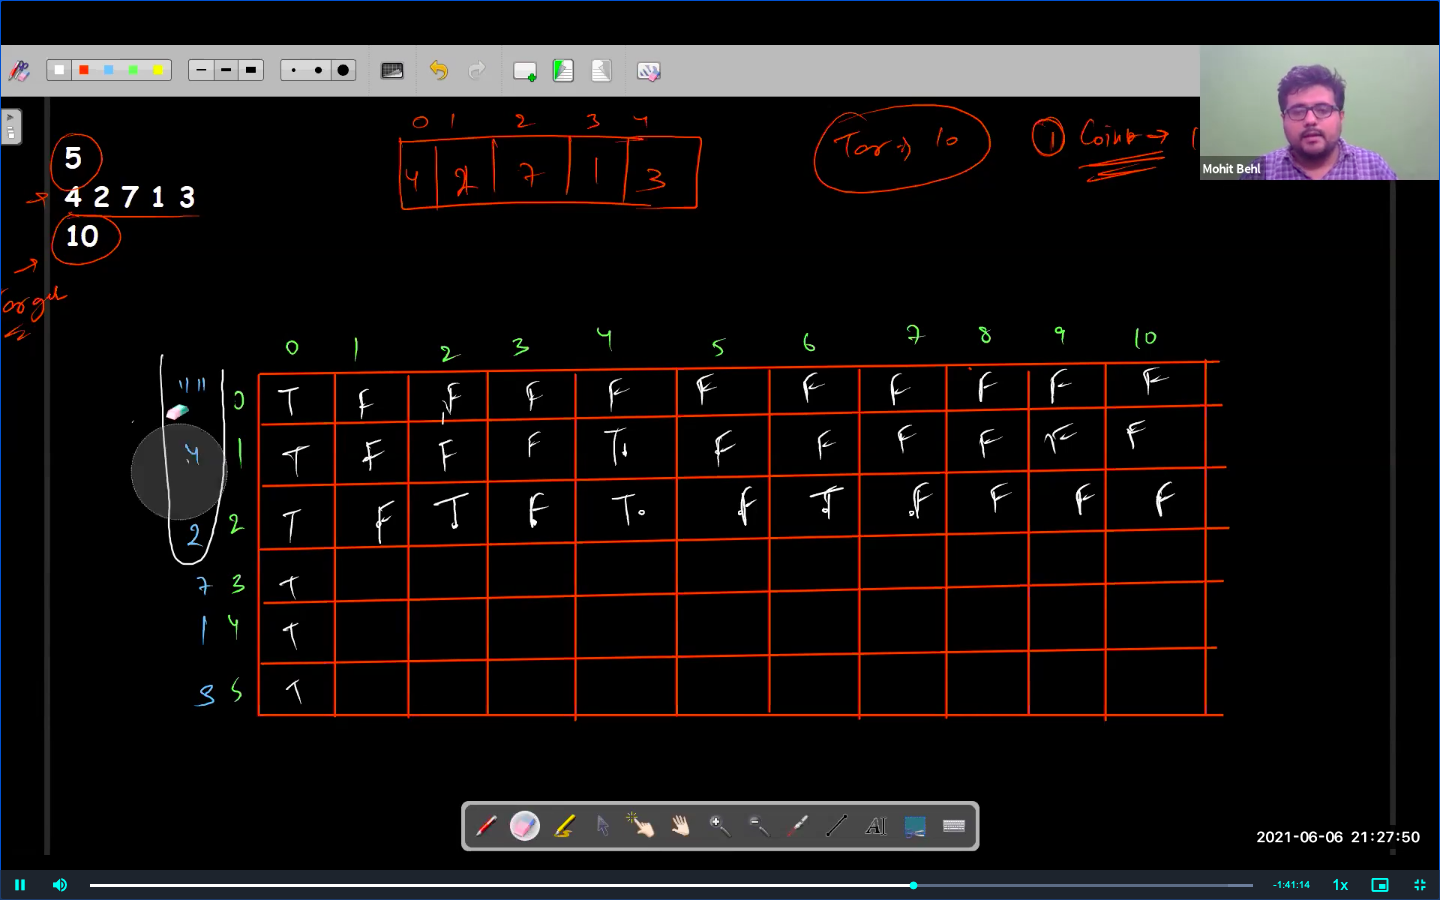 0 1 2 3 4
5
4 2 7 1 3
10
4 2 7 1 3
Tar → 10
① Coin
Mohit Behl
0 1 2 3 4 5 6 7 8 9 10
"" 0 T F F F F F F F F F F
4 1 T F F F T F F F F F F
2 2 T F T F T F T F F F F
7 3 T
1 4 T
3 5 T
AI
2021-06-06 21:27:50
-1:41:14 1x